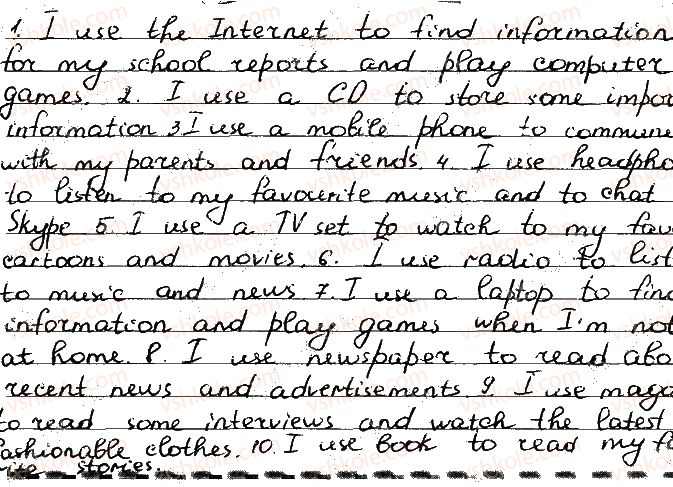 1. I use the Internet to find information
for my school reports and play computer
games. 2. I use a CD to store some impor
information 3 I use a mobile phone to commune
with my parents and friends. 4. I use headpho
to listen to my favourite music and to chat
Skype 5. I use a TV set to watch to my fav
cartoons and movies. 6. I use radio to list
to music and news 7. I use a laptop to find
information and play games when I'm not
at home. 8. I use newspaper to read abo
recent news and advertisements 9 I use maga
to read some interviews and watch the latest
fashionable clothes. 10. I use book to read my fa
rite stories.